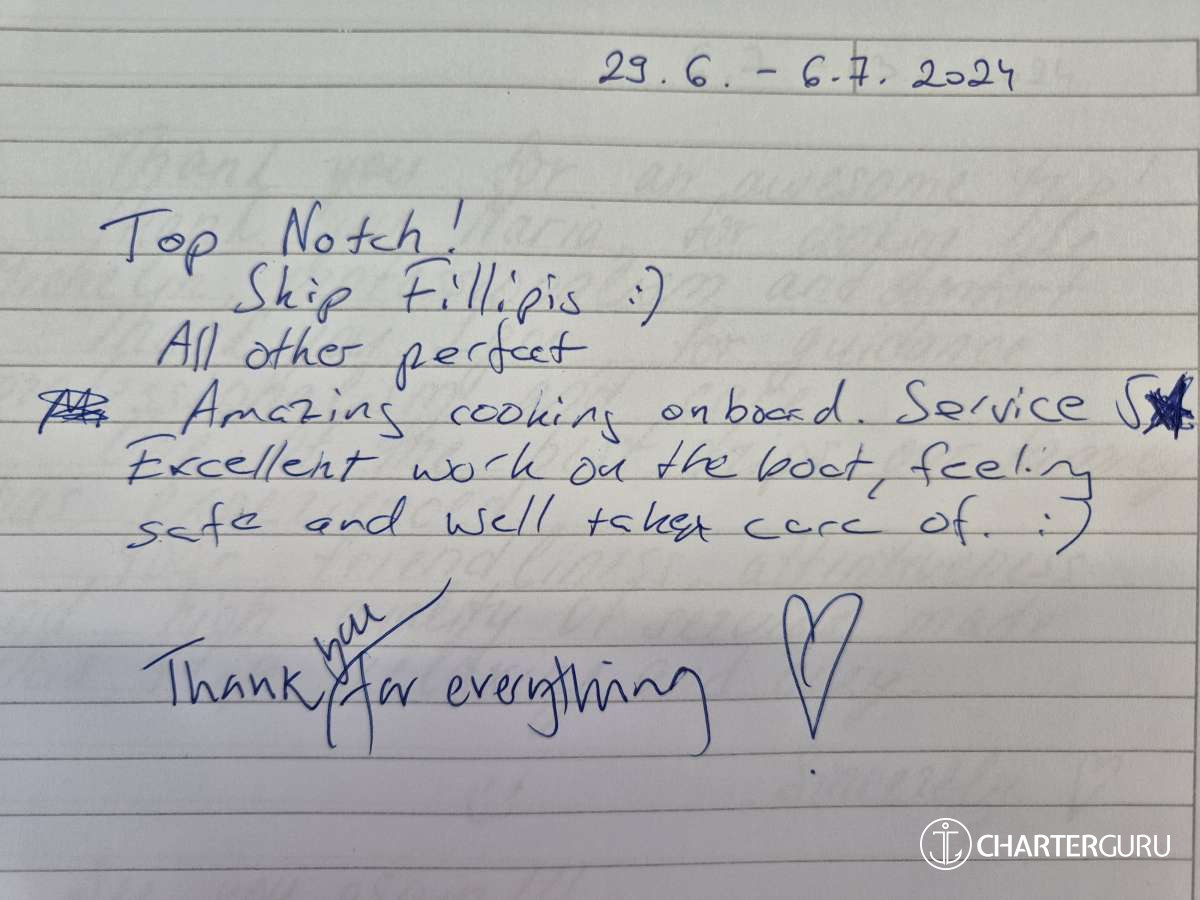 29. 6. - 6.7. 2024
Top Notch!
Skip Fillipis :)
All other perfect
Amazing cooking onboard. Service 5★
Excellent work on the boat, feeling
safe and well taken care of. :)
Thank you for everything ♡
CHARTERGURU